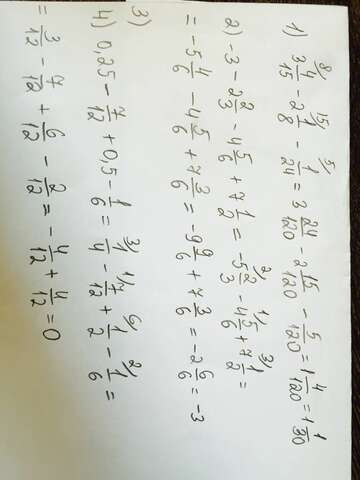 1) 3 8/ 4/15 - 2 15/ 1/8 - 5/ 1/24 = 3 24/120 - 2 15/120 - 5/120 = 1 4/120 = 1 1/30
2) -3 - 2 2/3 - 4 5/6 + 7 1/2 = -5 2/ 2/3 - 4 5/6 + 7 3/ 1/2 =
= -5 4/6 - 4 5/6 + 7 3/6 = -9 9/6 + 7 3/6 = -2 6/6 = -3
3)
4) 0,25 - 7/12 + 0,5 - 1/6 = 3/ 1/4 - 1/ 7/12 + 6/ 1/2 - 2/ 1/6 =
= 3/12 - 7/12 + 6/12 - 2/12 = - 4/12 + 4/12 = 0